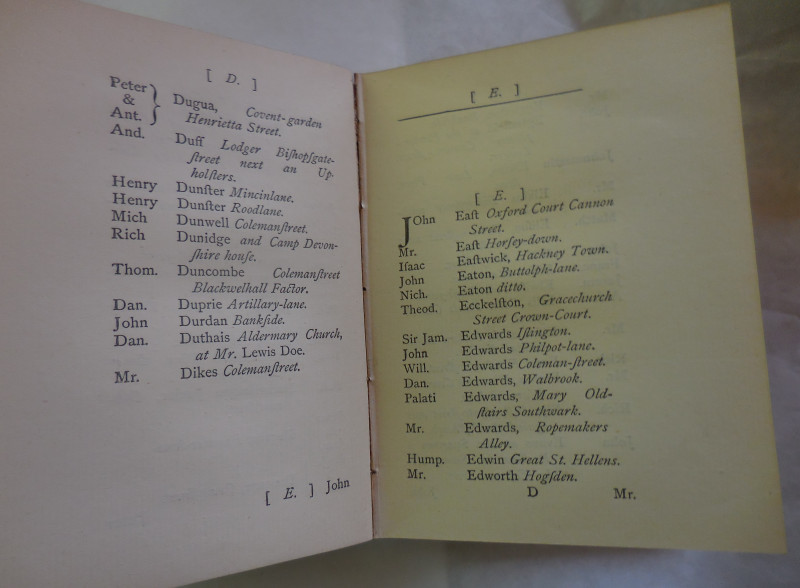 [ D. ]
Peter
&
Ant. } Dugua, Covent-garden
Henrietta Street.
And. Duff Lodger Biſhopſgate-
ſtreet next an Up-
holſters.
Henry Dunſter Mincinlane.
Henry Dunſter Roodlane.
Mich Dunwell Colemanſtreet.
Rich Dunidge and Camp Devon-
ſhire houſe.
Thom. Duncombe Colemanſtreet
Blackwelhall Factor.
Dan. Duprie Artillary-lane.
John Durdan Bankſide.
Dan. Duthais Aldermary Church,
at Mr. Lewis Doe.
Mr. Dikes Colemanſtreet.
[ E. ] John
[ E. ]
[ E. ]
JOhn Eaſt Oxford Court Cannon
Street.
Mr. Eaſt Horſey-down.
Iſaac Eaſtwick, Hackney Town.
John Eaton, Buttolph-lane.
Nich. Eaton ditto.
Theod. Ecckelſton, Gracechurch
Street Crown-Court.
Sir Jam. Edwards Iſlington.
John Edwards Philpot-lane.
Will. Edwards Coleman-ſtreet.
Dan. Edwards, Walbrook.
Palati Edwards, Mary Old-
ſtairs Southwark.
Mr. Edwards, Ropemakers
Alley.
Hump. Edwin Great St. Hellens.
Mr. Edworth Hogſden.
D Mr.